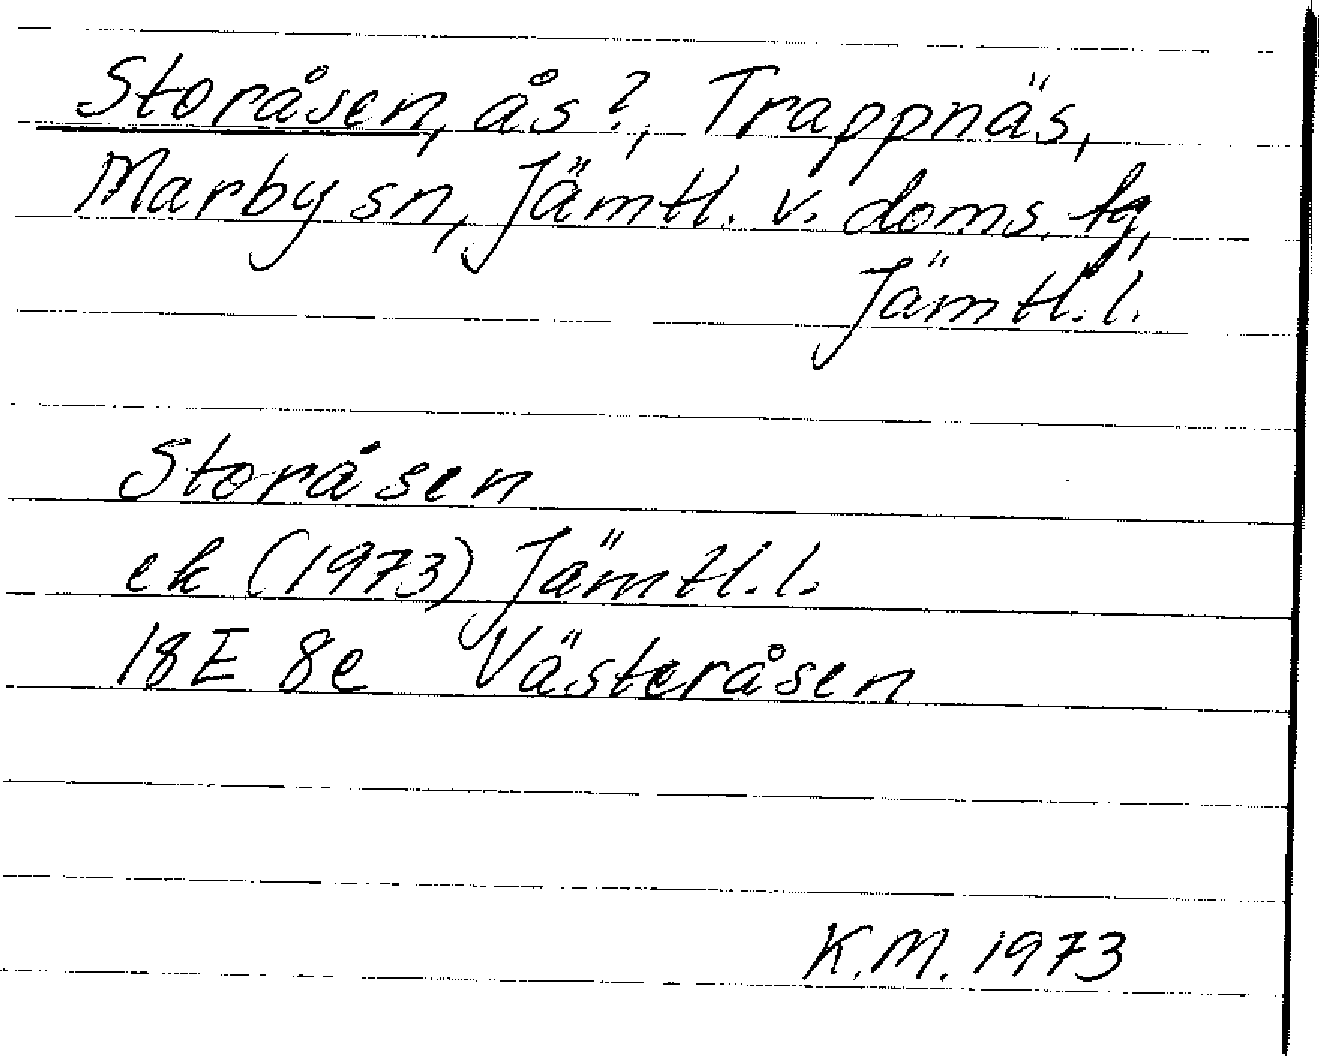 Storåsen, ås?, Trappnäs,
Marby sn, Jämtl. v. doms. tg,
Jämtl. l.
Storåsen
ek (1973) Jämtl. l.
18E 8e Västeråsen
K.M. 1973